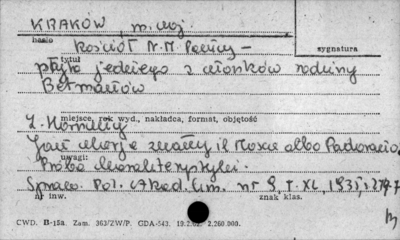 KRAKÓW, m. woj.
hasło
Kościół N. M. Panny –
sygnatura
tytuł
płyta jednego z członków rodziny
Betmanów
miejsce, rok wyd., nakładca, format, objętość
Z. Hornung
Jan Maria z zwany il Mosca albo Padovano.
uwagi:
Próba charakterystyki.
Spraw. Pol. Akad. Um. nr 9, T. XL, 1935,
nr inw.
znak klas.
CWD. B-15a. Zam. 363/ZW/P. GDA-543. 19.2.62. 2.260.000.